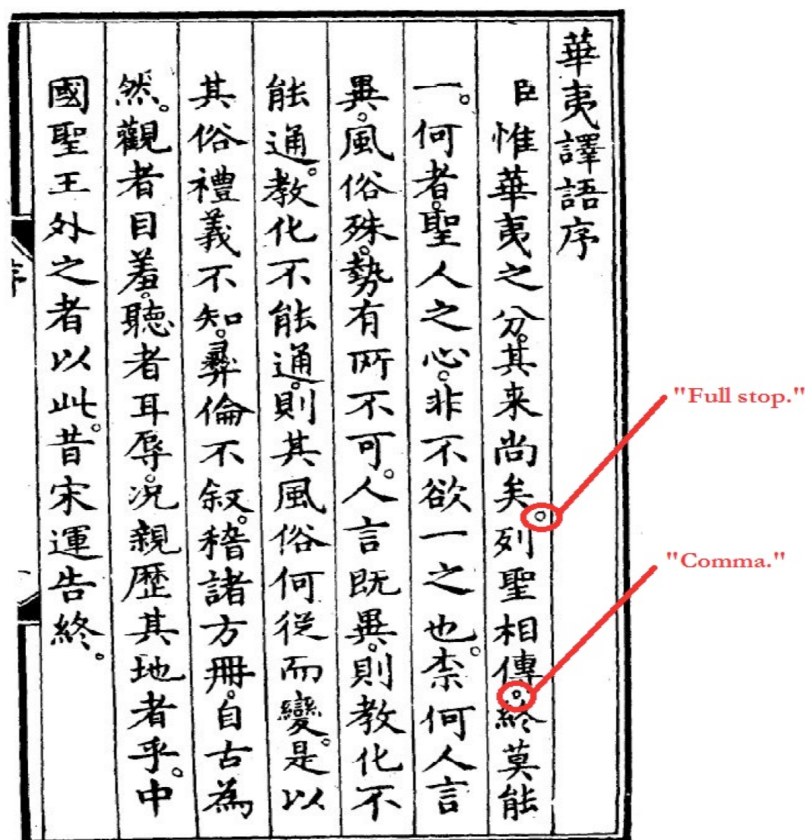 華夷譯語序
臣惟華夷之分。其来尚矣。列聖相傳。終莫能
一。何者。聖人之心。非不欲一之也。柰何人言
異。風俗殊。勢有所不可。人言既異。則教化不
能通。教化不能通。則其風俗何従而變。是以
其俗禮義不知。彛倫不叙。稽諸方冊。自古為
然。觀者目羞。聽者耳辱。况親歷其地者乎。中
國聖王外之者以此。昔宋運告終。
"Full stop."
"Comma."